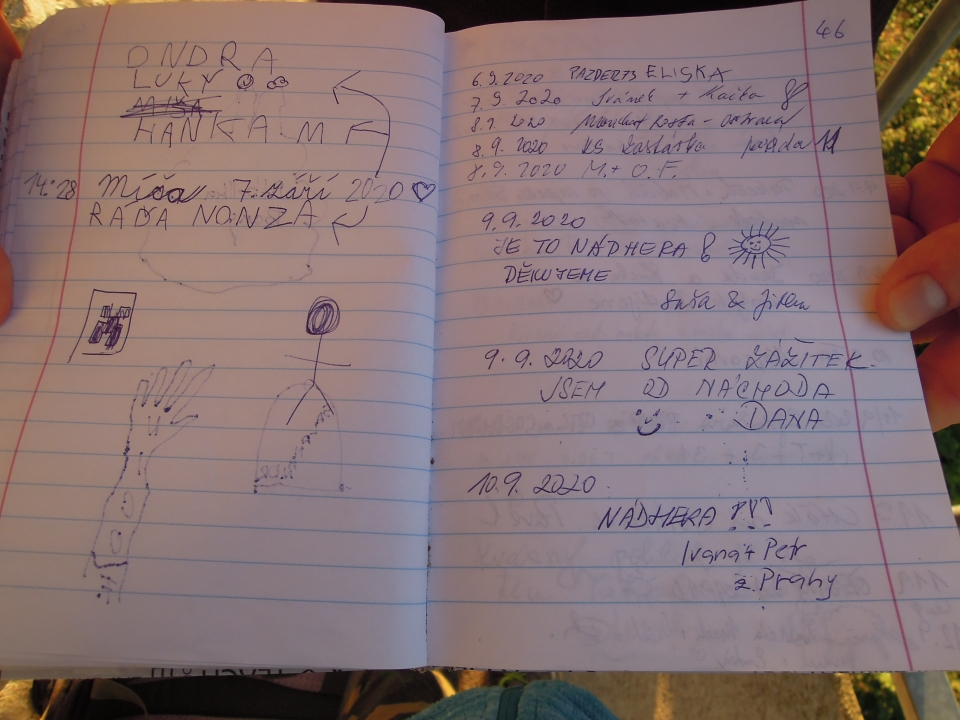 ONDRA
LUKY
MIŠA
HANKA M F
14:28 Míša 7. září 2020
RADA NONZA
46
6.9.2020 ELIŠKA
7.9.2020 + Kačka
8.9.2020
8.9.2020 KS
8.9.2020 M. + O.F.
9.9.2020
JE TO NÁDHERA
DĚKUJEME
Saša & Jirka
9.9.2020 SUPER ZÁŽITEK.
JSEM OD NÁCHODA
DANA
10.9.2020.
NÁDHERA !!!
Ivana + Petr
z Prahy